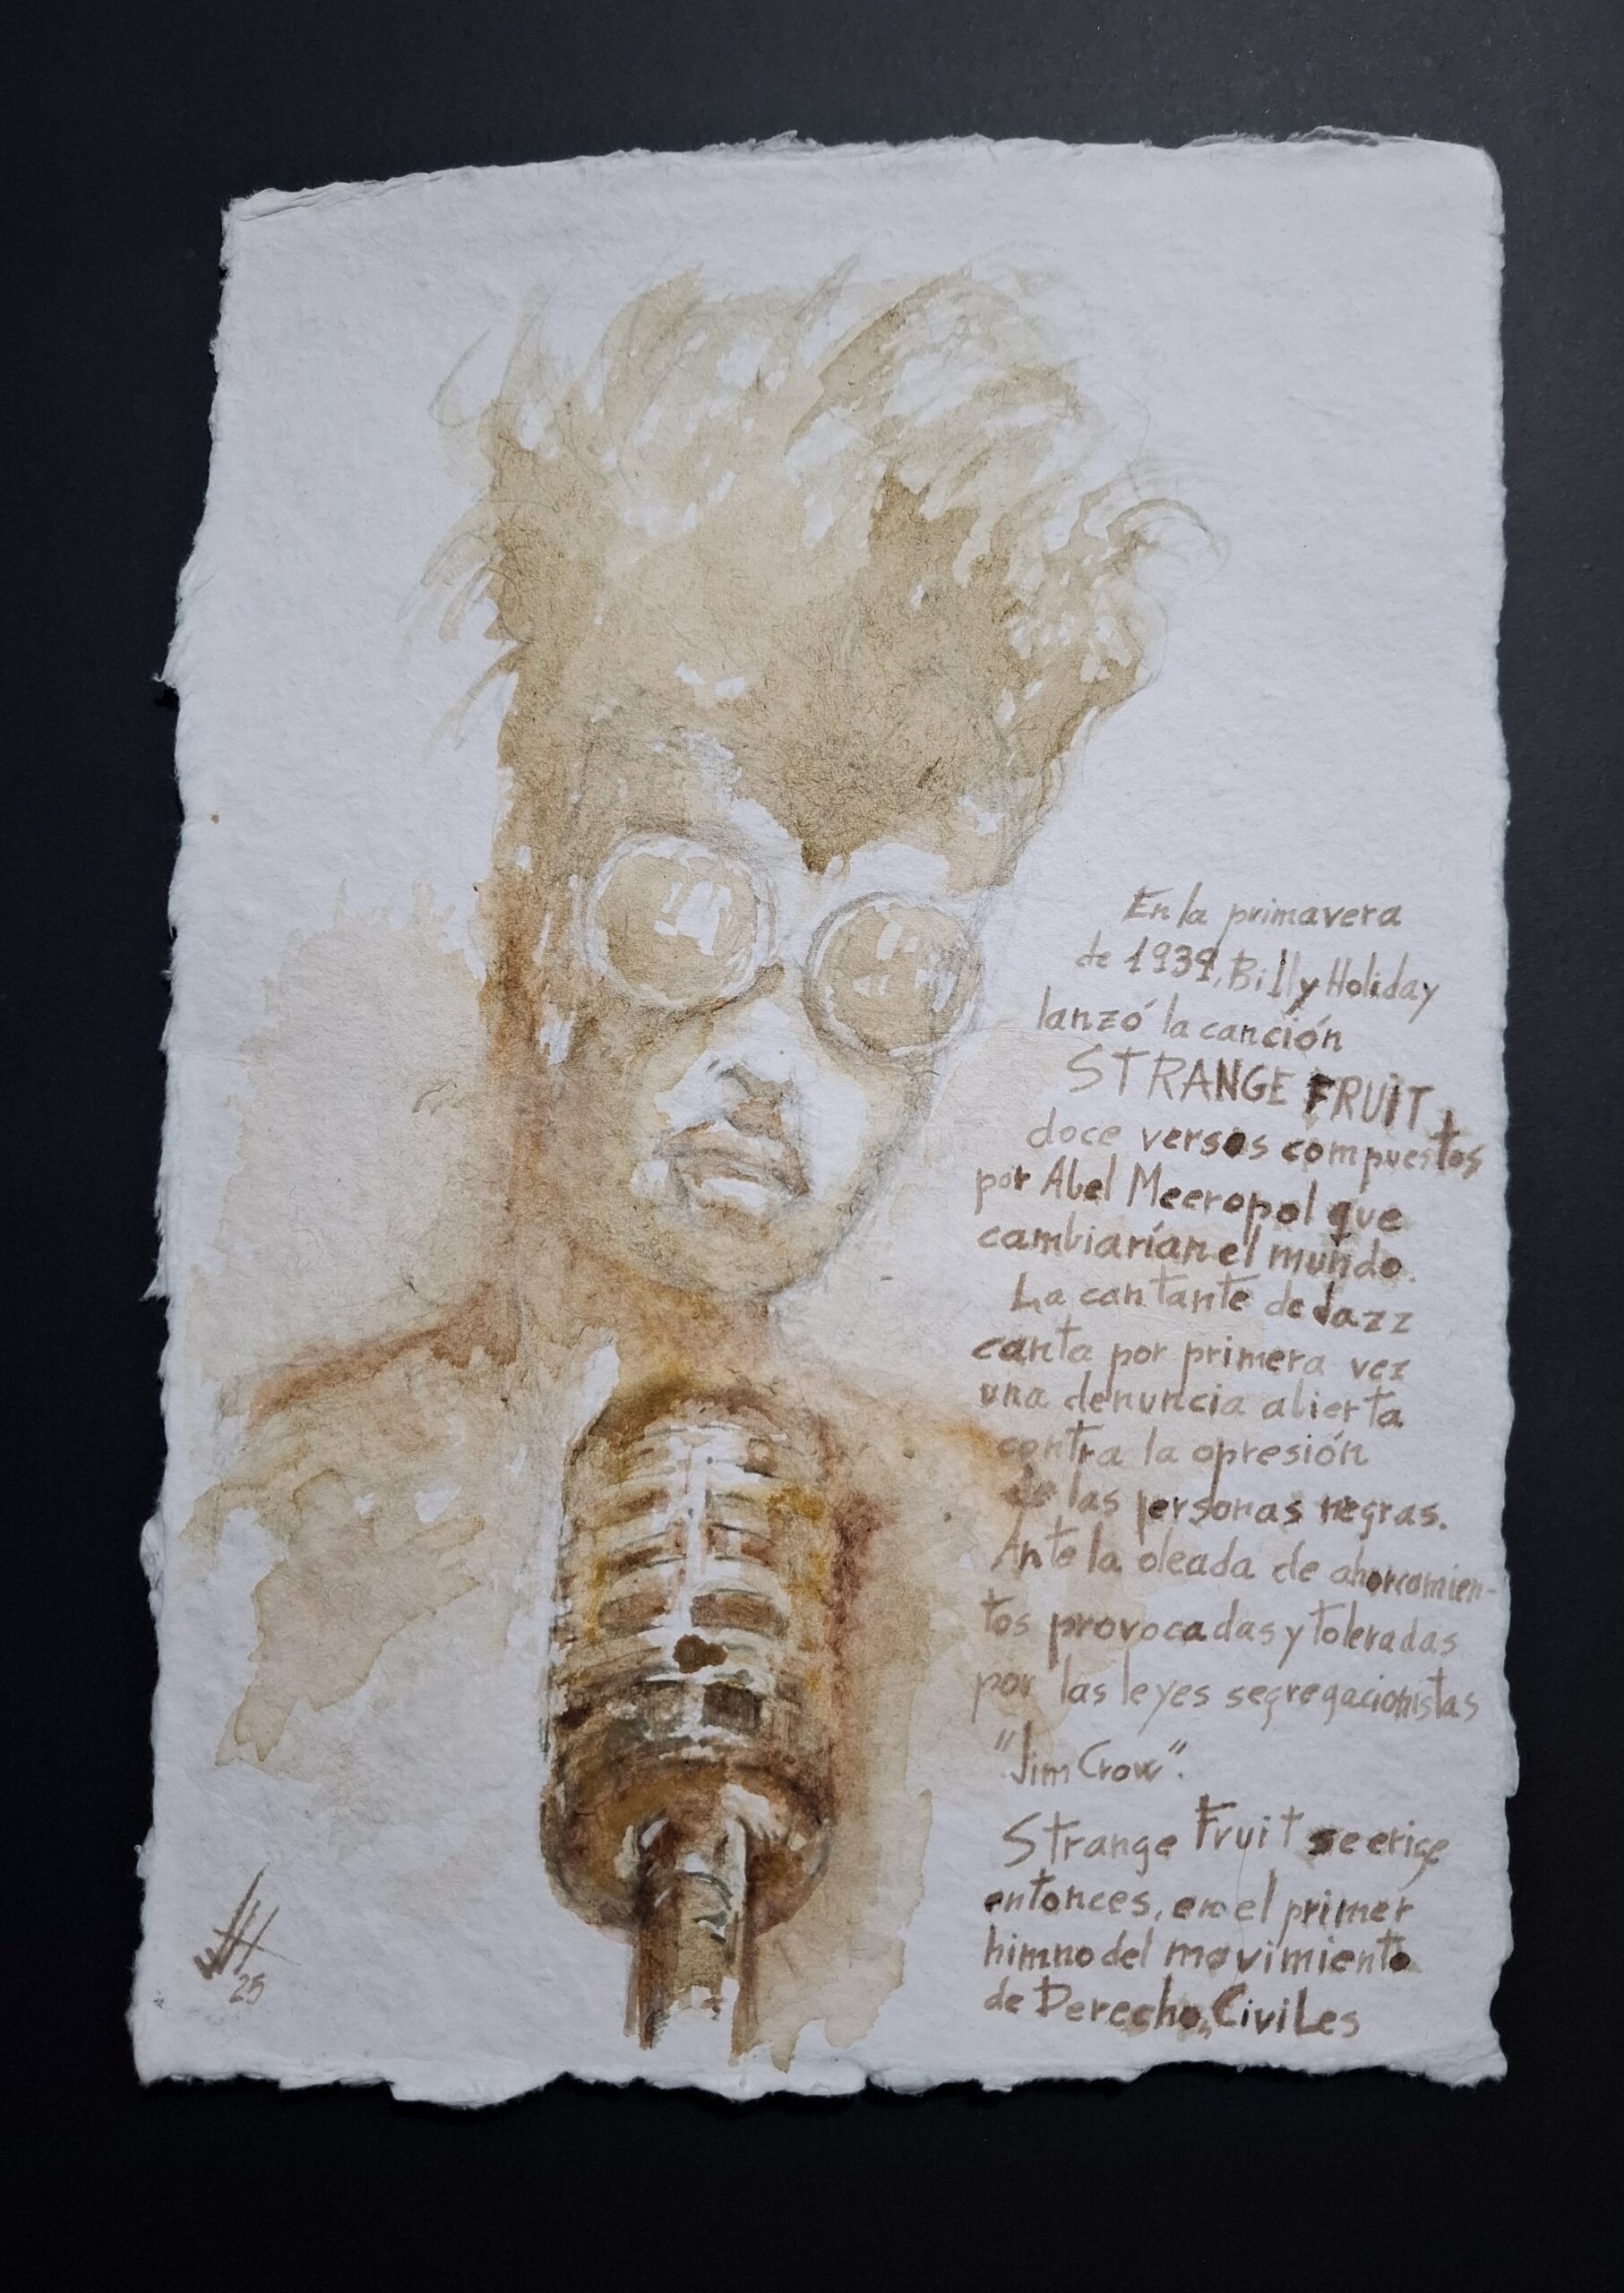 En la primavera
de 1939, Billy Holiday
lanzó la canción
STRANGE FRUIT,
doce versos compuestos
por Abel Meeropol que
cambiarían el mundo.
La cantante de Jazz
canta por primera vez
una denuncia abierta
contra la opresión
de las personas negras.
Ante la oleada de ahorcamien-
tos provocadas y toleradas
por las leyes segregacionistas
"Jim Crow".
Strange Fruit se erige
entonces, en el primer
himno del movimiento
de Derechos Civiles
25